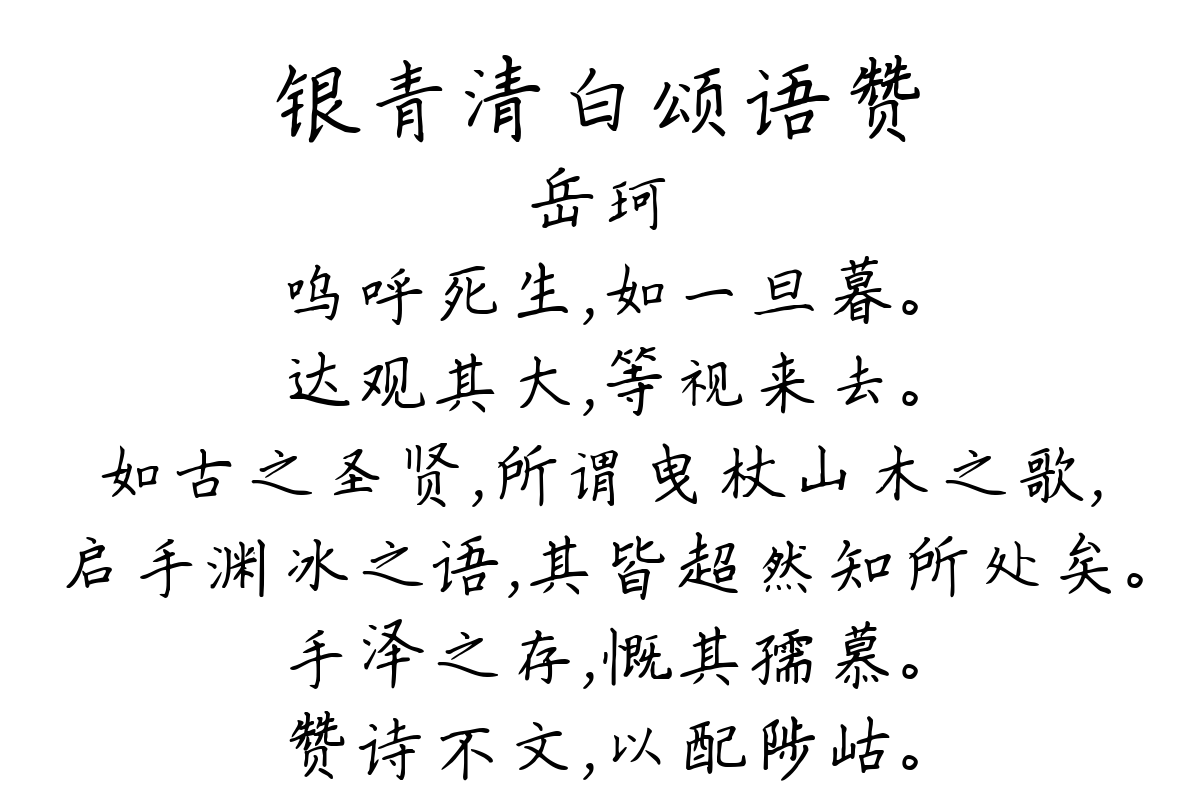 银青清白颂语赞
岳珂
呜呼死生,如一旦暮。
达观其大,等视来去。
如古之圣贤,所谓曳杖山木之歌,
启手渊冰之语,其皆超然知所处矣。
手泽之存,慨其孺慕。
赞诗不文,以配陟岵。